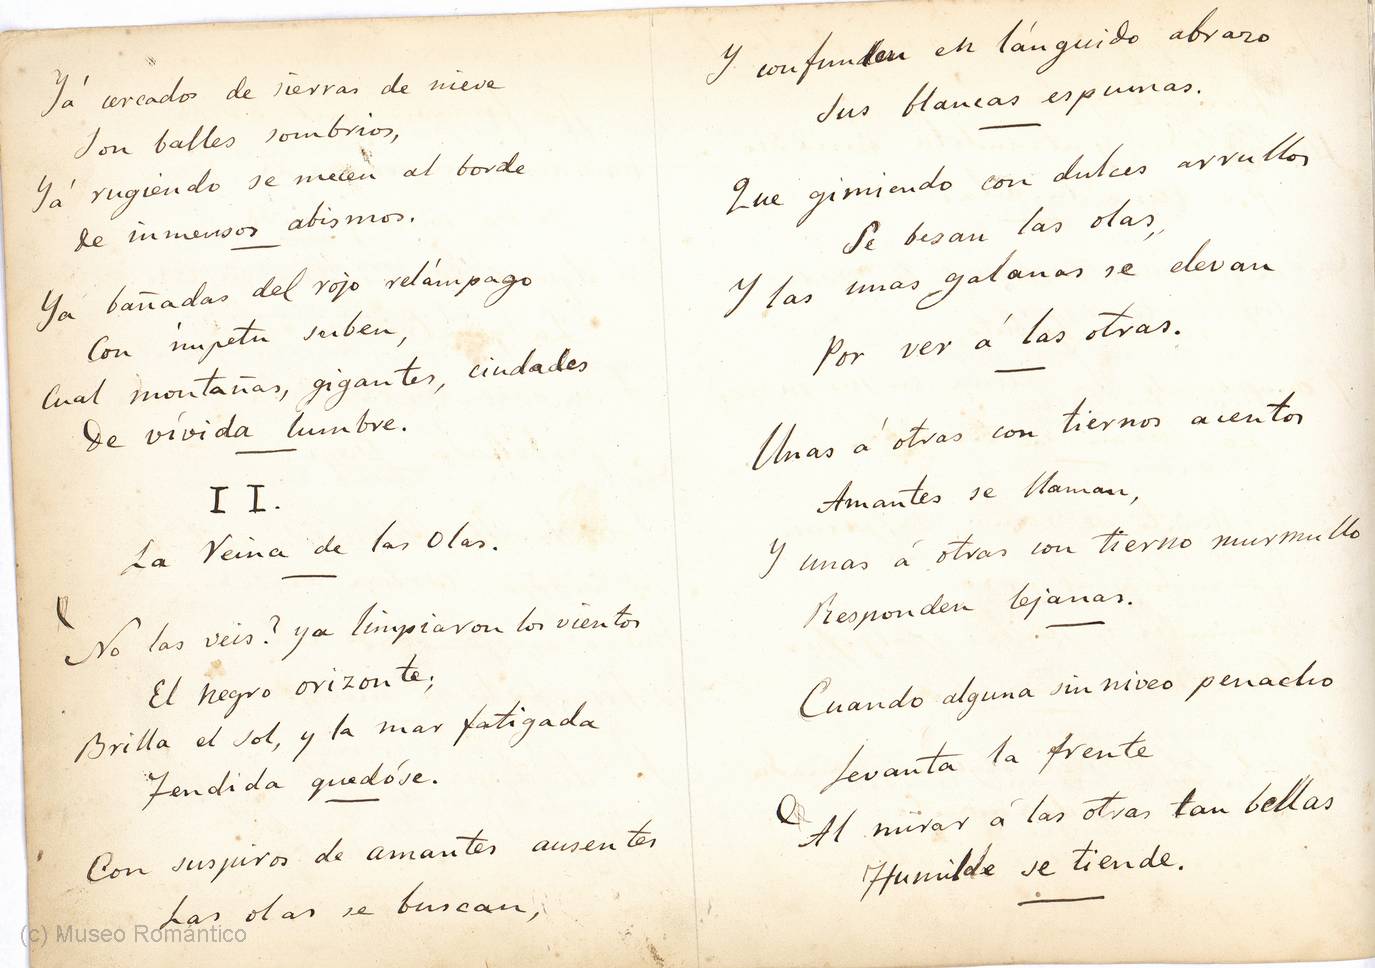 Yá cercados de sierras de nieve
Son balles sombrios,
Yá rugiendo se mecen al borde
de inmensos abismos.
Ya bañadas del rojo relámpago
Con ímpetu suben,
Cual montañas, gigantes, ciudades
De vívida lumbre.
II.
La Reina de las Olas.
No las veis? ya limpiaron los vientos
El negro orizonte;
Brilla el sol, y la mar fatigada
Tendida quedóse.
Con suspiros de amantes ausentes
Las olas se buscan,
Y confunden en lánguido abrazo
Sus blancas espumas.
Que gimiendo con dulces arrullos
Se besan las olas,
Y las unas galanas se elevan
Por ver á las otras.
Unas á otras con tiernos acentos
Amantes se llaman,
Y unas á otras con tierno murmullo
Responden lejanas.
Cuando alguna sin niveo penacho
Levanta la frente
Al mirar á las otras tan bellas
Humilde se tiende.
(c) Museo Romántico